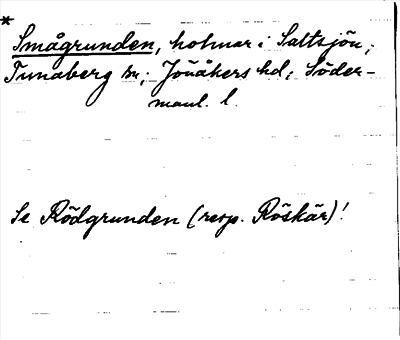 *
Smågrunden, holmar i Saltsjön,
Tunaberg sn; Jönåkers hd; Söder-
manl. l.
Se Rödgrunden (resp. Röskär)!